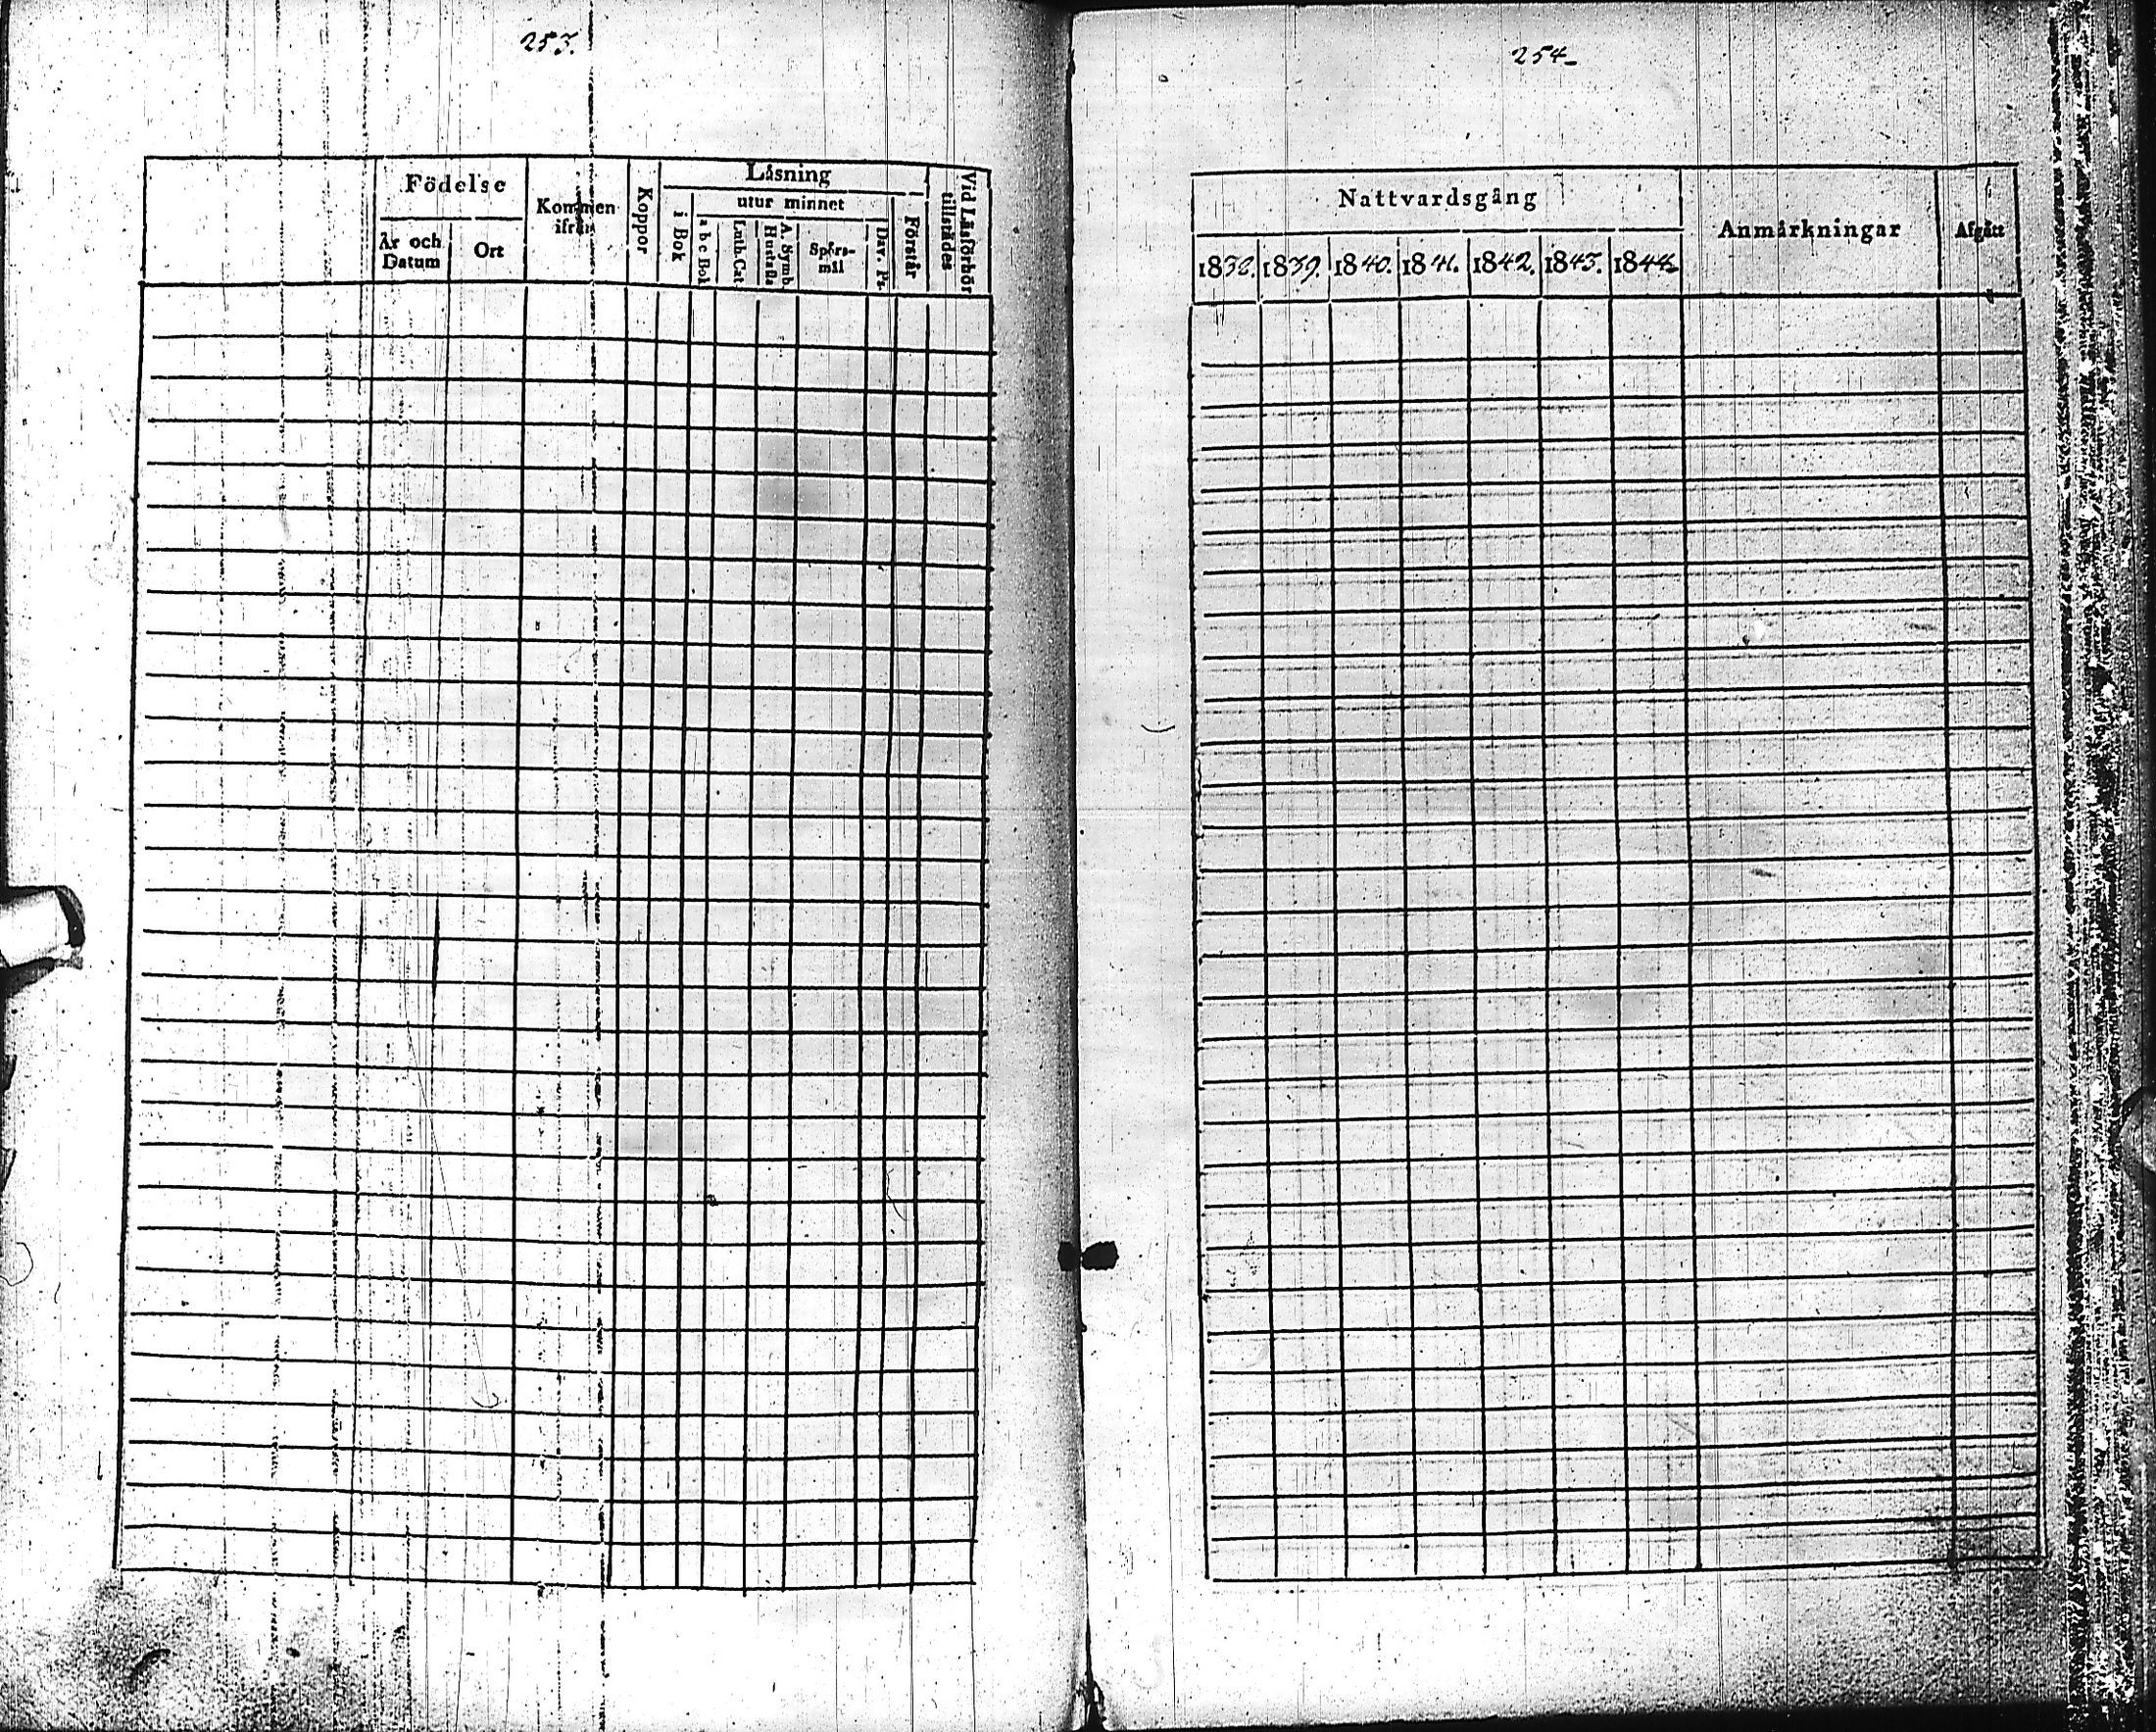 253.
Födelse
Kommen ifrån
Koppor
Läsning
Vid Läsförhör tillstädes
År och Datum
Ort
i Bok
utur minnet
Förstår
a b c Bok
Luth. Cat.
A. Symb. Hustafla
Spörsmål
Dav. Ps.
254
Nattvardsgång
Anmärkningar
Afgått
1838. 1839. 1840. 1841. 1842. 1843. 1844.